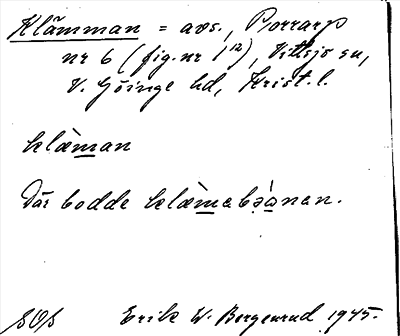 Klämman = avs., Porrarp
nr 6 (fig. nr 1¹²), Vittsjö sn,
V. Göinge hd, Krist. l.
klæ̀man
Där bodde klæ̀mabə̀ànan.
SOS Erik W. Bergenrud 1945.